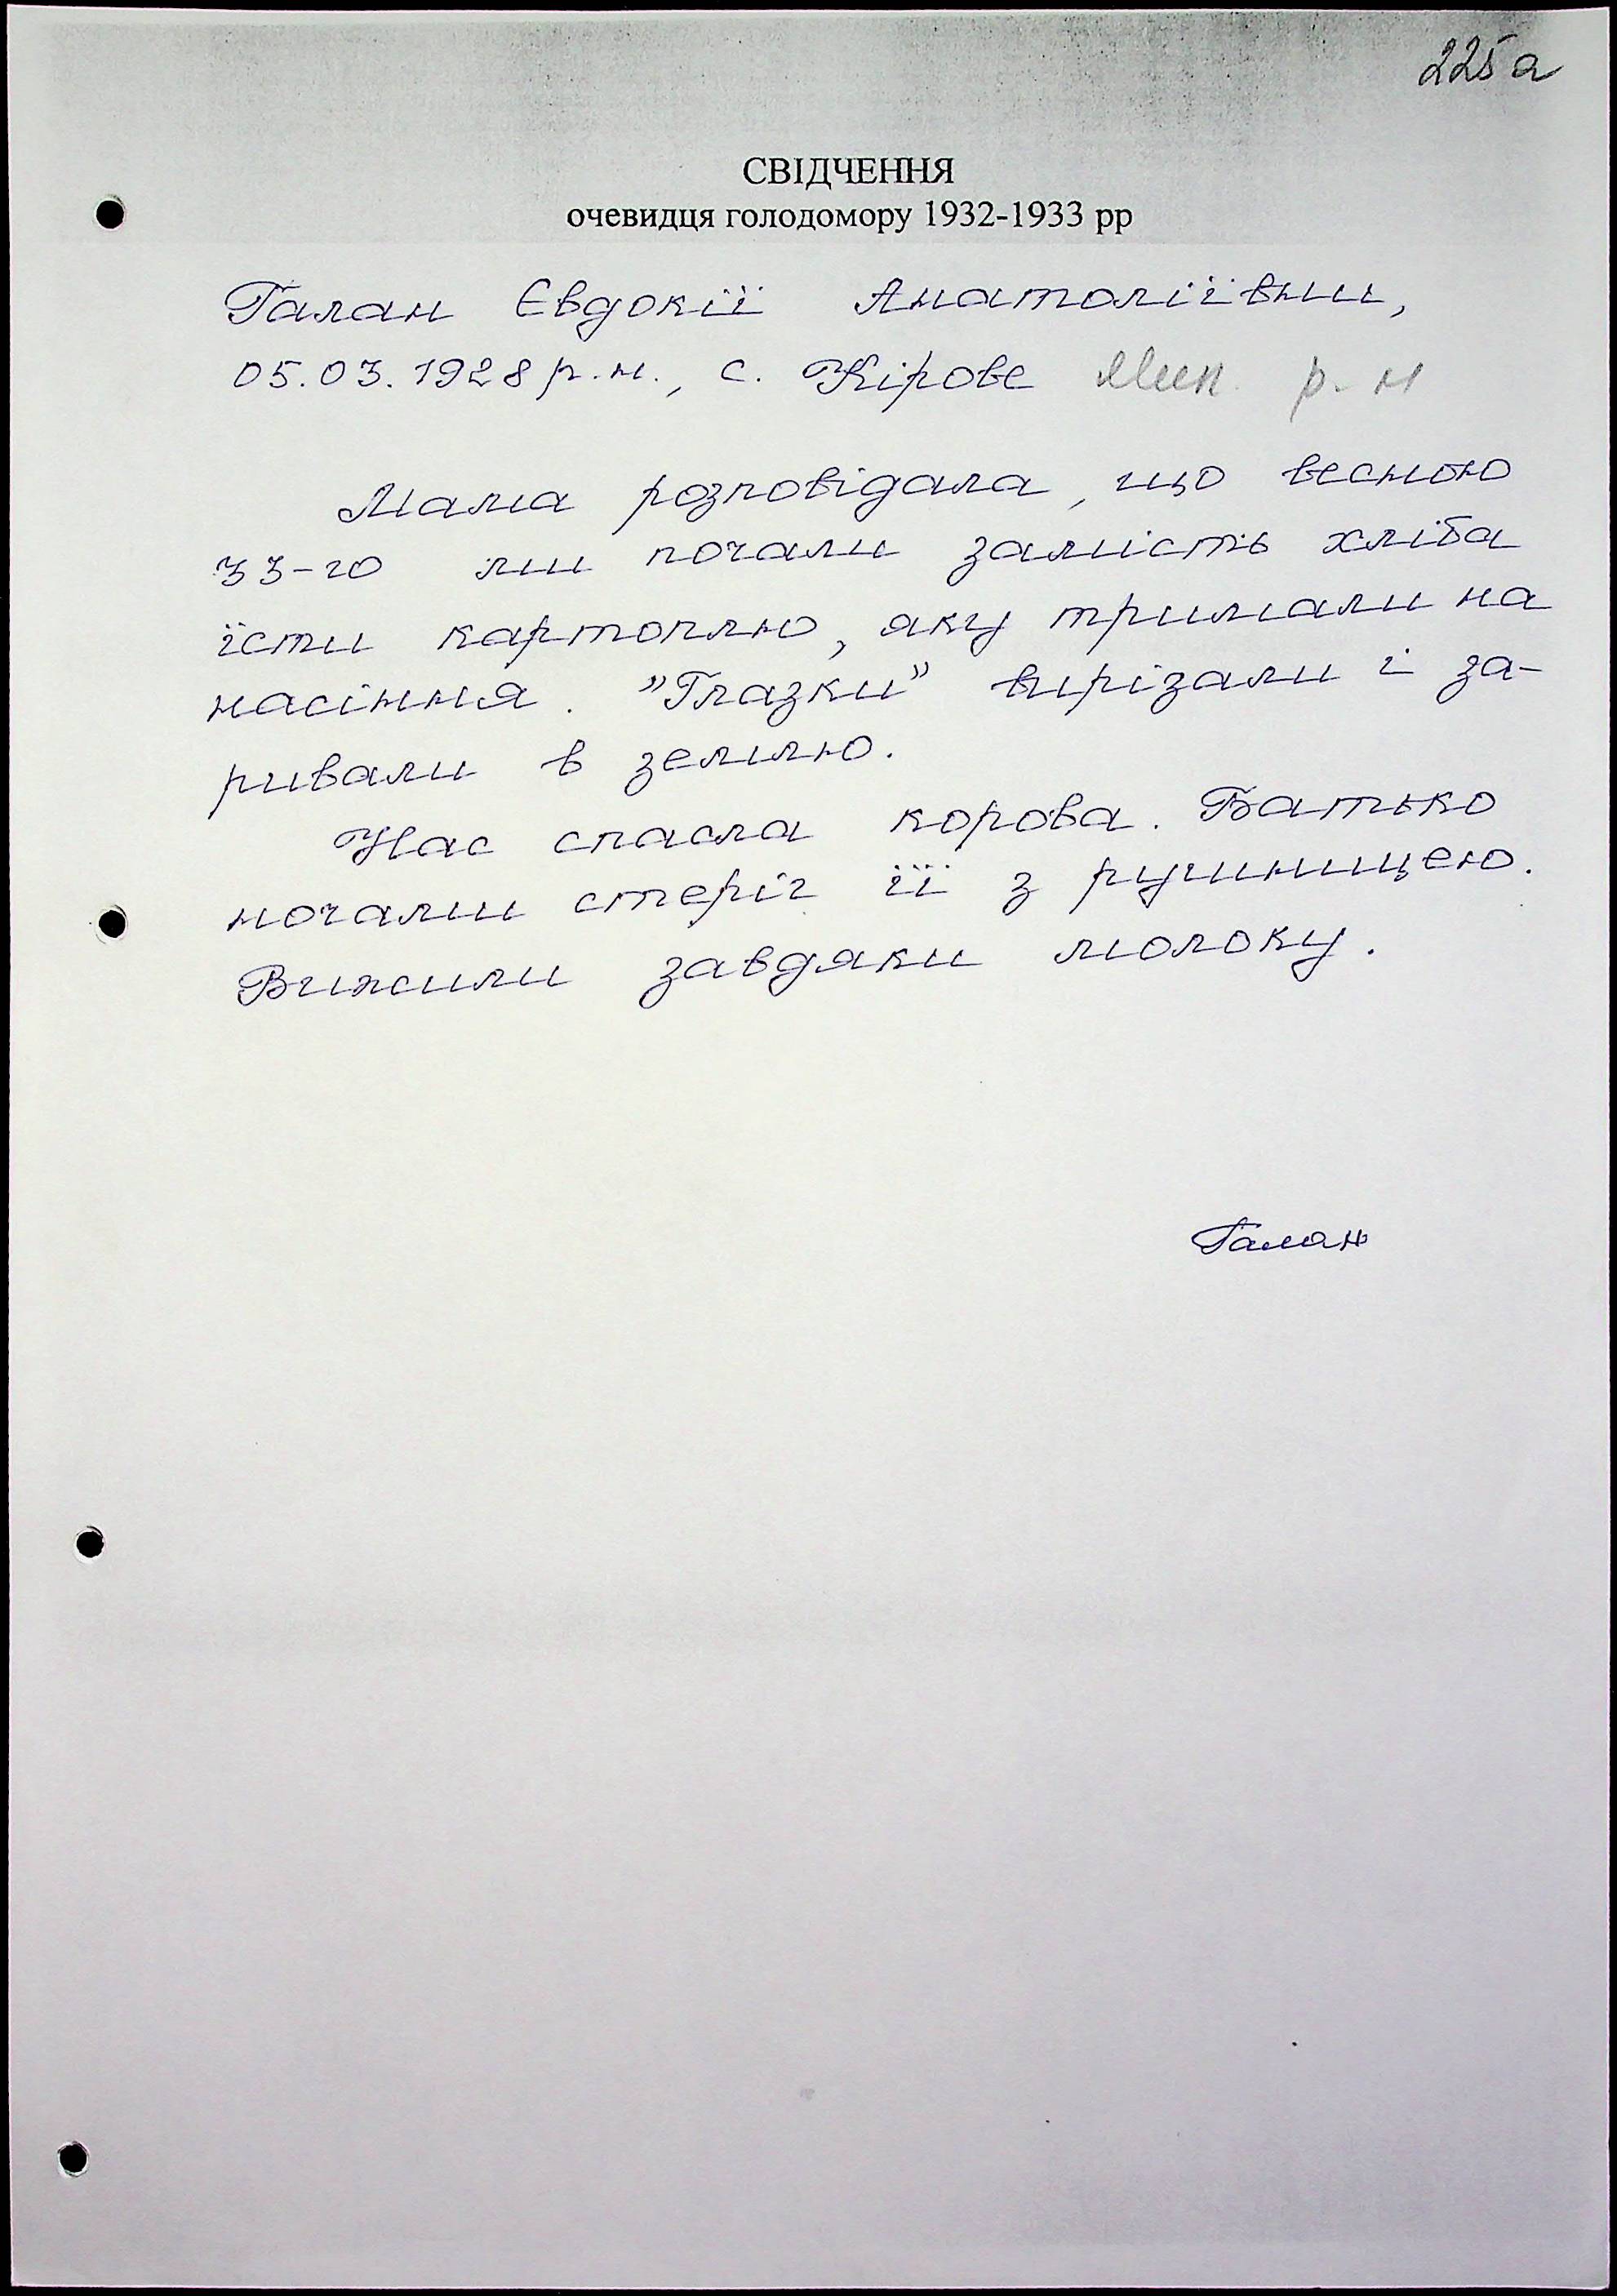 225а
СВІДЧЕННЯ
очевидця голодомору 1932-1933 рр
Галан Євдокії Анатоліївни,
05.03.1928 р.н., с. Кірове Мик. р-н
Мама розповідала, що весною
33-го ми почали замість хліба
їсти картоплю, яку тримали на
насіння. "Глазки" вирізали і за-
ривали в землю.
Нас спасла корова. Батько
ночами стеріг її з рушницею.
Вижили завдяки молоку.
Галан